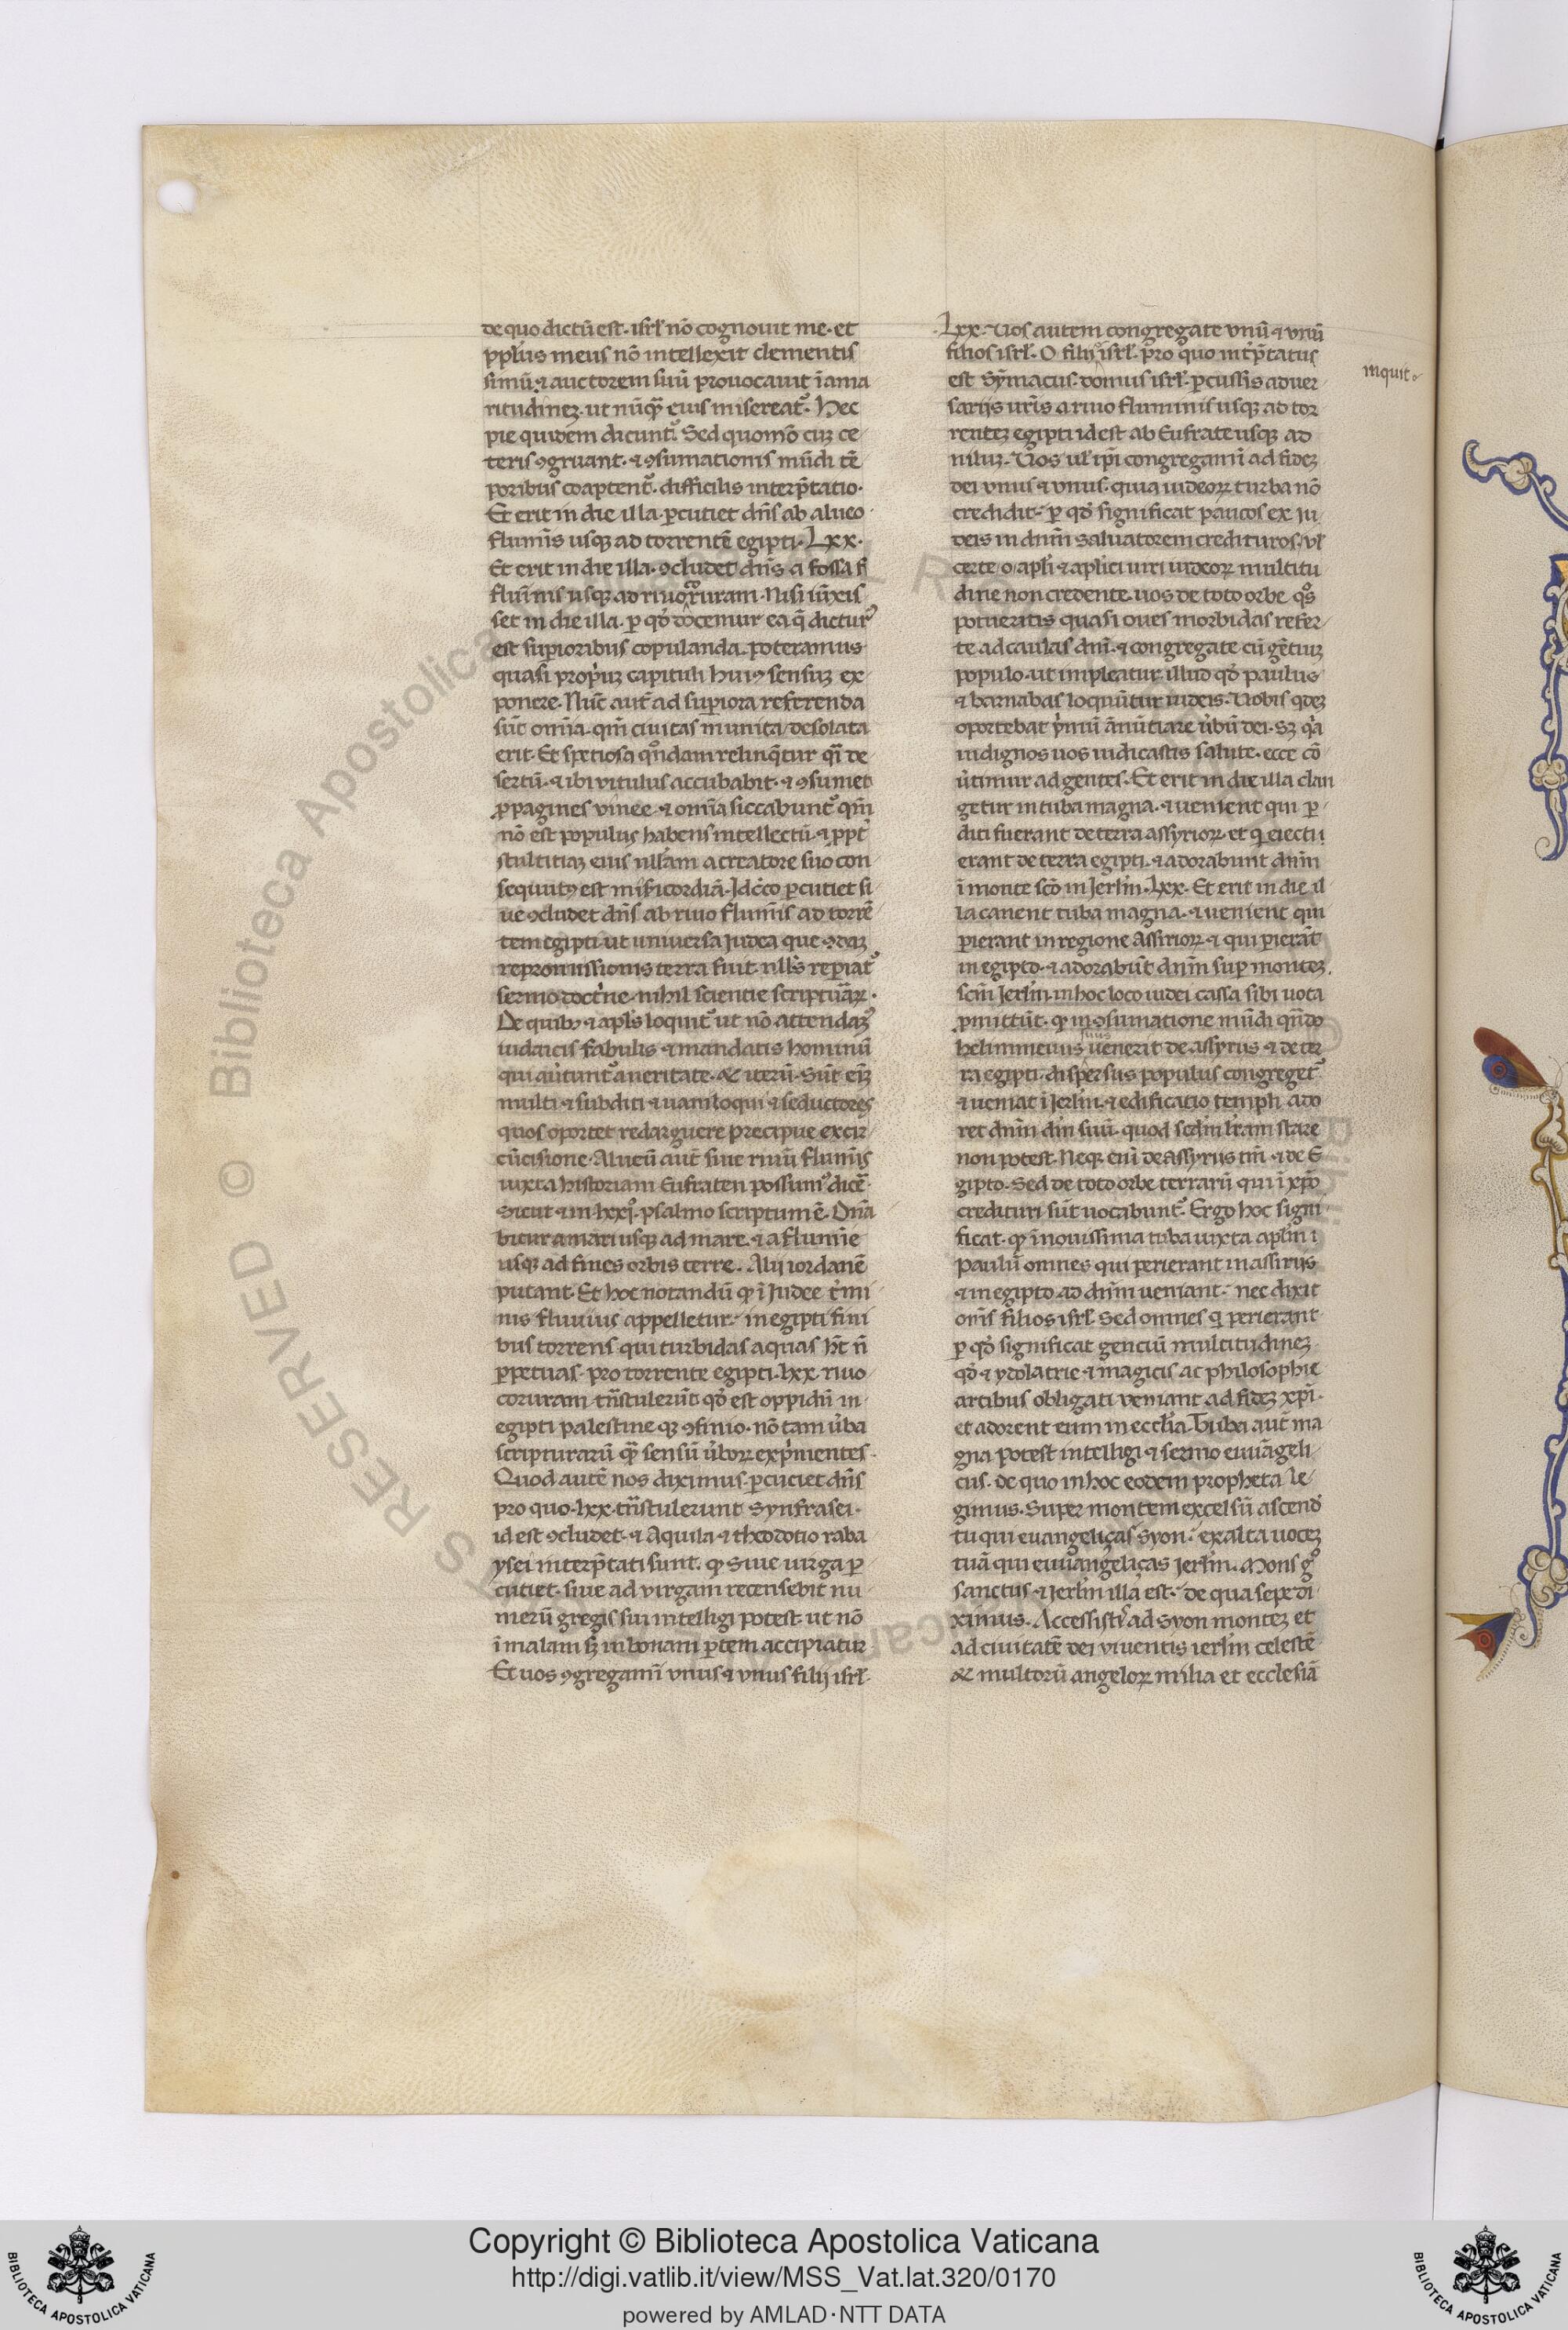 de quo dictū est. isrł nō cognouit me. et
ppl'us meus nō intellexit clementis
simū. ⁊ auctorem suū prouocauit ī ama
ritudinez. ut nūqꝫ eius misereat᷑. Hec
pie quidem dicunt᷑. Sed quomō cuz ce
teris ꝯgruant. ⁊ ꝯsumationis mūdi tē
poribus coaptent᷑. difficilis interp̄tatio.
Et erit in die illa. ꝑcutiet dn̄s ab alueo
flumīs usqꝫ ad torrentē egipti. Lxx.
Et erit in die illa. ꝯcludet dn̄s a fossa
flumīnis usqꝫ ad riuoruram. Nisi iūxis
set in die illa. ꝑ qd̓ docemur ea q̄ dictur᷑
est supioribus copulanda. poteramus
quasi propriuz capituli huiꝯ sensuz ex
ponere. Nūc aut̄ ad superiora referenda
sūt omīa. qm̄ ciuitas munita desolata
erit. Et spetiosa qn̄dam relinq̄tur q̄si de
sertū. ⁊ ibi vitulus accubabit. ⁊ ꝯsumet
ꝓpagines vinee. ⁊ omīa siccabunt᷑ qm̄
nō est populus habens intellectū. ⁊ ꝓpt̓
stultitiaz eius nllam a creatore suo con
sequutꝯ est mīscordiā. Idcco ꝑcutiet si
ue ꝯcludet dn̄s ab riuo flumīs ad torrē
tem egipti ut uniuersa Iudea que ꝯdaz
repromissionis terra fuit. nllꝰ reꝑiat᷑
sermo doctrīne. nihil scientie scripturāꝝ.
De quibꝫ ⁊ apl's loquit᷑ ut nō attendaꝰ
iudaicis fabulis ⁊ mandatis hominū
qui au̓tunt᷑ a ueritate. & iterū. Sūt eīz
multi ⁊ subditi ⁊ uaniloqui ⁊ seductores
quos oportet redarguere precipue ex cir
cūcisione. Alueū aut̄ siue riuū flumīs
iuxta historiam Eufraten possumꝰ dicē
Sicut ⁊ in lxxj. psalmo scriptum ē. Dn̄a
bitur a mari usqꝫ ad mare. ⁊ a flumīe
usqꝫ ad fines orbis terre. Alij iordanē
putant. Et hoc notandū qꝫ ī Iudee t̓mi
nis fluuius appelletur. in egipti fini
bus torrens qui turbidas aquas hꝫt n̄
ꝑpetuas. pro torrente egipti. lxx riuo
coruram trn̄stulerūt qd̓ est oppidū in
egipti palestine qꝫ ꝯfinio. nō tam u̓ba
scripturarū qꝫ sensū u̓boꝝ exp̓mentes.
Quod autē nos diximus. ꝑcutiet dn̄s
pro quo. lxx. trn̄stulerunt synfrasei.
id est ꝯcludet. ⁊ Aquila ⁊ theodotio raba
ysei interp̄tati sunt. qꝫ siue uirga ꝑ
cutiet. siue ad virgam recensebit nu
merū gregis sui intelligi potest. ut nō
ī malam sꝫ in bonam ꝑtem accipiatur
Et uos ꝯgregamī vnus ⁊ vnus filij isrł.
Lxx. Uos autem congregate vnū ⁊ vnū
filios isrł. O filij isrł. pro quo int̓p̄tatus
est Sym̄acus. domus isrł. ꝑcussis aduer
sarijs ur̄is a riuo fluminis usqꝫ ad tor
rentez egipti id est ab Eufrate usqꝫ ad
niluz. Uos uł ip̄i congregamī ad fidez
dei vnus ⁊ vnus. quia iudeoꝝ turba nō
credidit. ꝑ qd̓ significat paucos ex iu
deis in dnm̄ saluatorem credituros. vł
certe o apl'i ⁊ aplici uiri iudeoꝝ multitu
dine non credente. uos de toto orbe qꝰs
potueritis quasi oues morbidas refer
te ad caulas dnī. ⁊ congregate cū gētiuz
populo. ut impleatur illud qd̓ paulus
⁊ barnabas loquūtur iudeis. Uobis qdez
oportebat p̓mū ānūtiare u̓bū dei. Sꝫ q̓a
indignos uos iudicastis salute. ecce cō
u̓timur ad gentes. Et erit in die illa clan
getur in tuba magna. ⁊ uenient qui ꝑ
diti fuerant de terra assyrioꝝ. et q̓ eiecti
erant de terra egipti. ⁊ adorabunt dnm̄
ī monte scō in Ierlm̄. Lxx. Et erit in die il
la canent tuba magna. ⁊ uenient qui
ꝑierant in regione Assirioꝝ. ⁊ qui ꝑierāt
in egipto. ⁊ adorabūt dnm̄ suꝑ montez.
scm̄ Ierlm̄. in hoc loco iudei cassa sibi uota
ꝓmittūt. qꝫ in ꝯsumatione mūdi qn̄do
helimmenus suus uenerit de assyriis ⁊ de ter
ra egipti. dispersus populus congreget᷑
⁊ ueniat ī Ierlm̄. ⁊ edificatio templi ado
ret dnm̄ dm̄ suū. quod scdm̄ lr̄am stare
non potest. Neqꝫ enī de assyriis tm̄ ⁊ de E
gipto. Sed de toto orbe terrarū qui ī xp̄o
credituri sūt uocabunt᷑. Ergo hoc signi
ficat. qꝫ ī nouissima tuba iuxta aplm̄
paulū omnes qui perierant in assirijs
⁊ in egipto ad dnm̄ ueniant. nec dixit
om̄s filios isrł. Sed omnes q̓ perierant
ꝑ qd̓ significat gentiū multitudinez
qd̓ ⁊ ydolatrie ⁊ magicis ac philosophie
artibus obligati veniant ad fidez xp̄i.
et adorent eum in ecclīa. Tuba aut̄ ma
gna potest intelligi ⁊ sermo euuāgeli
cus. de quo in hoc eodem propheta le
gimus. Super montem excelsū ascend̓
tu qui euangelizas Syon. exalta uocez
tuā qui euuangelicas Ierlm̄. Mons gͦ
sanctus ⁊ Ierlm̄ illa est. de qua sepe di
ximus. Accessistis ad Syon montez et
ad ciuitatē dei viuentis ierlm̄ celestē
& multorū angeloꝝ milia et ecclesiā
inquit
Copyright © Biblioteca Apostolica Vaticana
http://digi.vatlib.it/view/MSS_Vat.lat.320/0170
powered by AMLAD·NTT DATA
BIBLIOTECA APOSTOLICA VATICANA
BIBLIOTECA APOSTOLICA VATICANA